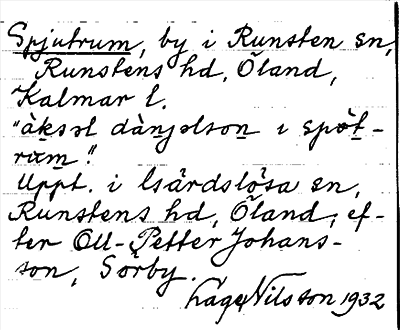 Spjutrum, by i Runsten sn,
Runstens hd, Öland,
Kalmar l.
"àksəl dànjəlsoṉ ı spø̀t-
rɷm".
Uppt. i Gärdslösa sn,
Runstens hd, Öland, ef-
ter Oll-Petter Johans-
son, Sörby.
Lage Nilsson 1932